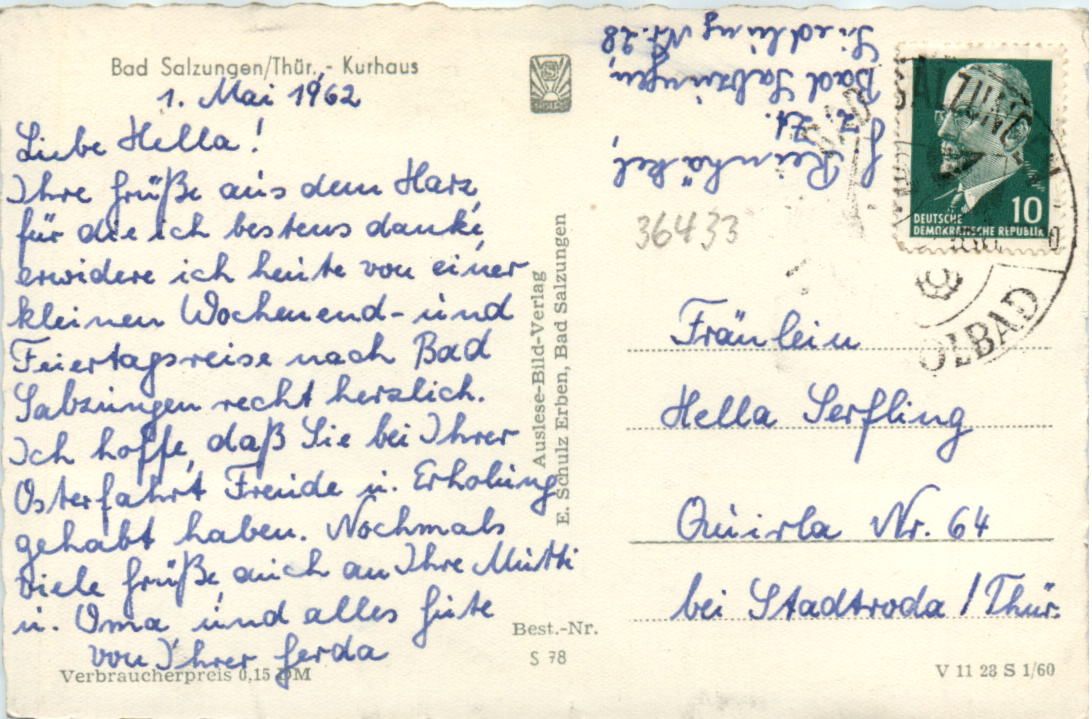 Bad Salzungen/Thür. - Kurhaus
1. Mai 1962
Liebe Hella!
Ihre Grüße aus dem Harz,
für die ich bestens danke,
erwidere ich heute von einer
kleinen Wochenend- und
Feiertagsreise nach Bad
Salzungen recht herzlich.
Ich hoffe, daß Sie bei Ihrer
Osterfahrt Freude u. Erholung
gehabt haben. Nochmals
viele Grüße, auch an Ihre Mutti
u. Oma und alles Gute
von Ihrer Gerda
Verbraucherpreis 0,15 DM
Auslese-Bild-Verlag
E. Schulz Erben, Bad Salzungen
Best.-Nr.
S 78
G. Reinhäkel,
z. Zt.
Bad Salzungen,
Siedlung Nr. 28
36433
DEUTSCHE
DEMOKRATISCHE REPUBLIK
10
BAD SALZUNGEN
SOLBAD
Fräulein
Hella Serfling
Quirla Nr. 64
bei Stadtroda / Thür.
V 11 28 S 1/60